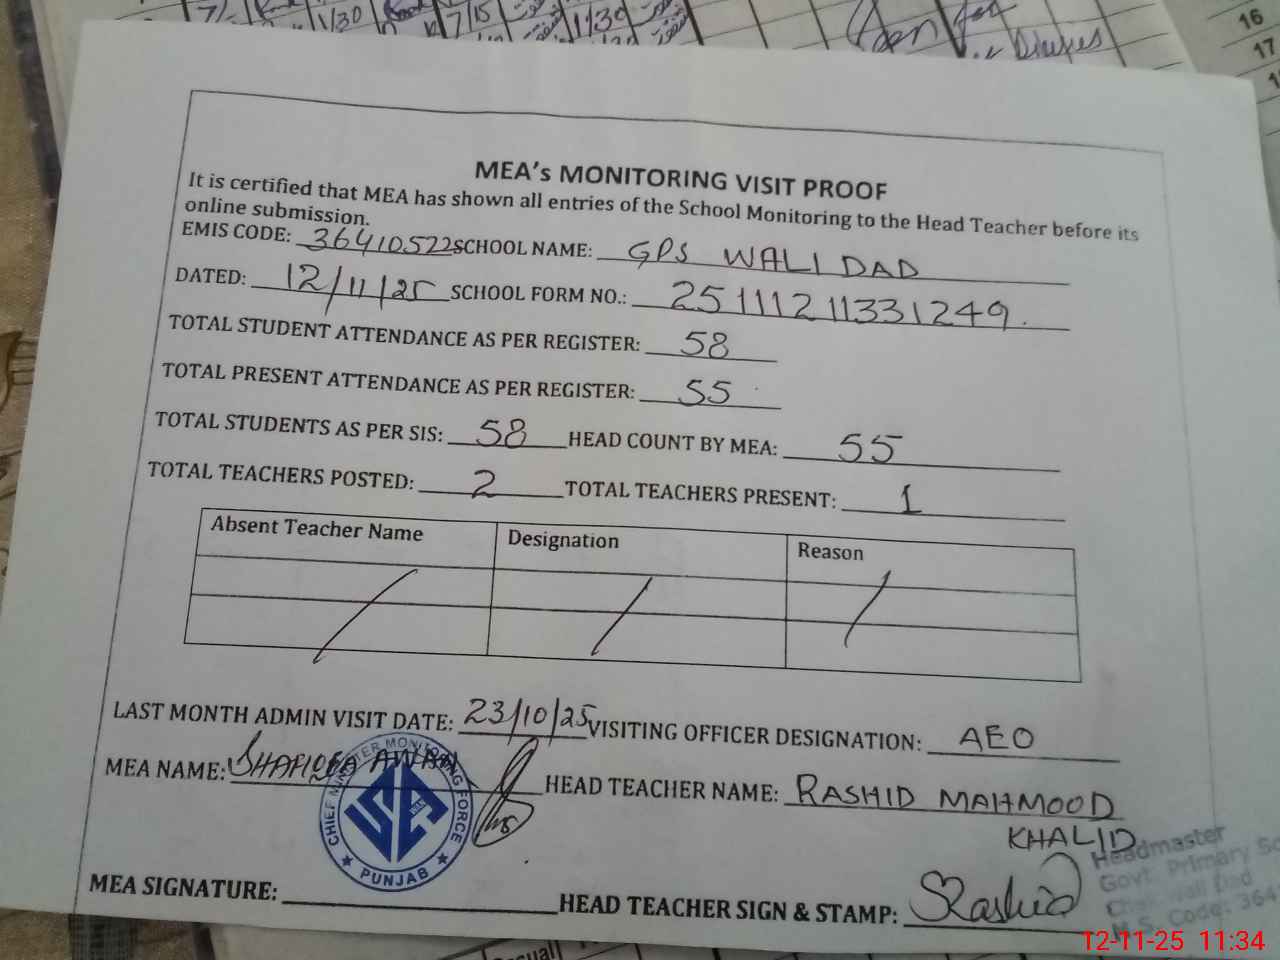 7/ 1/30 7/15 1/30
16
17
MEA's MONITORING VISIT PROOF
It is certified that MEA has shown all entries of the School Monitoring to the Head Teacher before its
online submission.
EMIS CODE: 36410522 SCHOOL NAME: GPS WALI DAD
DATED: 12/11/25 SCHOOL FORM NO.: 25111211331249.
TOTAL STUDENT ATTENDANCE AS PER REGISTER: 58
TOTAL PRESENT ATTENDANCE AS PER REGISTER: 55
TOTAL STUDENTS AS PER SIS: 58 HEAD COUNT BY MEA: 55
TOTAL TEACHERS POSTED: 2 TOTAL TEACHERS PRESENT: 1
Absent Teacher Name Designation Reason
LAST MONTH ADMIN VISIT DATE: 23/10/25 VISITING OFFICER DESIGNATION: AEO
MEA NAME: AWAN HEAD TEACHER NAME: RASHID MAHMOOD
KHALID
CHIEF MINISTER MONITORING FORCE
PUNJAB
MEA SIGNATURE: HEAD TEACHER SIGN & STAMP: Rashid
Headmaster
Govt. Primary Sc
Chak Wali Dad
Code: 364
12-11-25 11:34